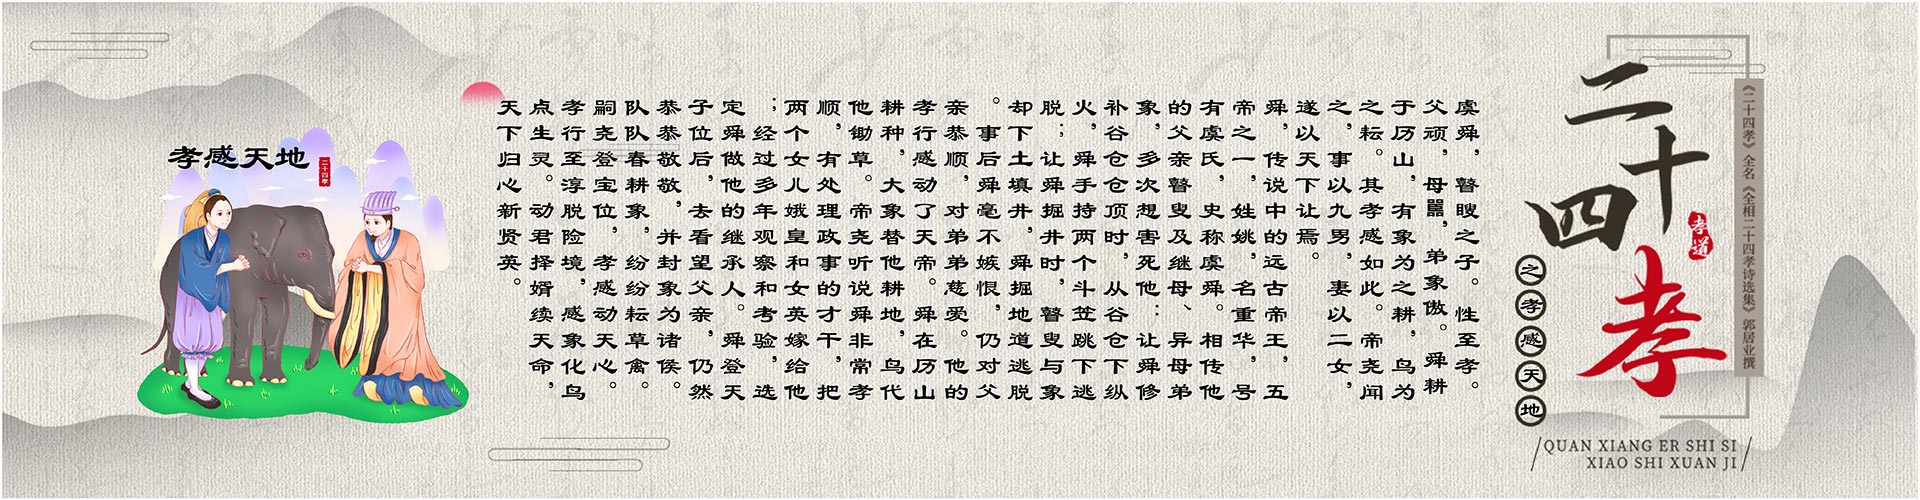 《二十四孝》全名《全相二十四孝诗选集》郭居业撰
二十四孝
孝道
之孝感天地
QUAN XIANG ER SHI SI
XIAO SHI XUAN JI
虞舜，瞽瞍之子。性至孝。
父顽，母嚚，弟象傲。舜耕
于历山，有象为之耕，鸟为
之耘。其孝感如此。帝尧闻
之，事以九男，妻以二女，
遂以天下让焉。
舜，传说中的远古帝王，五
帝之一，姓姚，名重华，号
有虞氏，史称虞舜。相传他
的父亲瞽叟及继母、异母弟
象，多次想害死他：让舜修
补谷仓仓顶时，从谷仓下纵
火，舜手持两个斗笠跳下逃
脱；让舜掘井时，瞽叟与象
却下土填井，舜掘地道逃脱
。事后舜毫不嫉恨，仍对父
亲恭顺，对弟弟慈爱。他的
孝行感动了天帝。舜在厉山
耕种，大象替他耕地，鸟代
他锄草。帝尧听说舜非常孝
顺，有处理政事的才干，把
两个女儿娥皇和女英嫁给他
；经过多年观察和考验，选
定舜做他的继承人。舜登天
子位后，去看望父亲，仍然
恭恭敬敬，并封象为诸侯。
队队春耕象，纷纷耘草禽。
嗣尧登宝位，孝感动天心。
孝行至淳脱险境，感象化鸟
点生灵。动君择婿续天命，
天下归心新贤英。
孝感天地
二十四孝